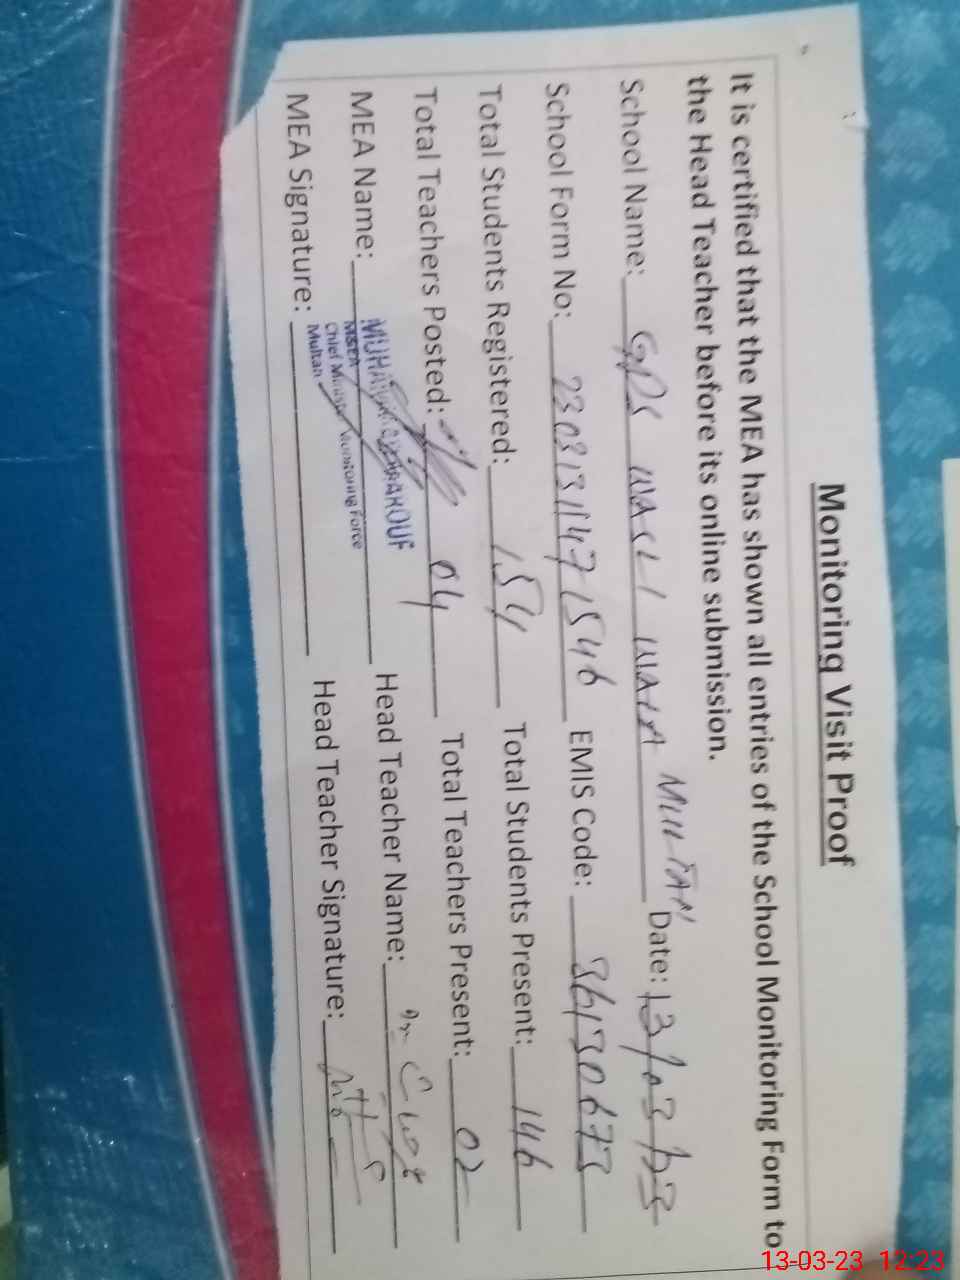 Monitoring Visit Proof
It is certified that the MEA has shown all entries of the School Monitoring Form to
the Head Teacher before its online submission.
School Name: GPS WALI WALA MULTAN Date: 13/03/23
School Form No: EMIS Code: 36130673
Total Students Registered: 154 Total Students Present: 146
Total Teachers Posted: 04 Total Teachers Present: 02
MEA Name: Head Teacher Name:
MEA Signature: Head Teacher Signature:
MSEA
Chief Minister Monitoring Force
Multan
13-03-23 12:23